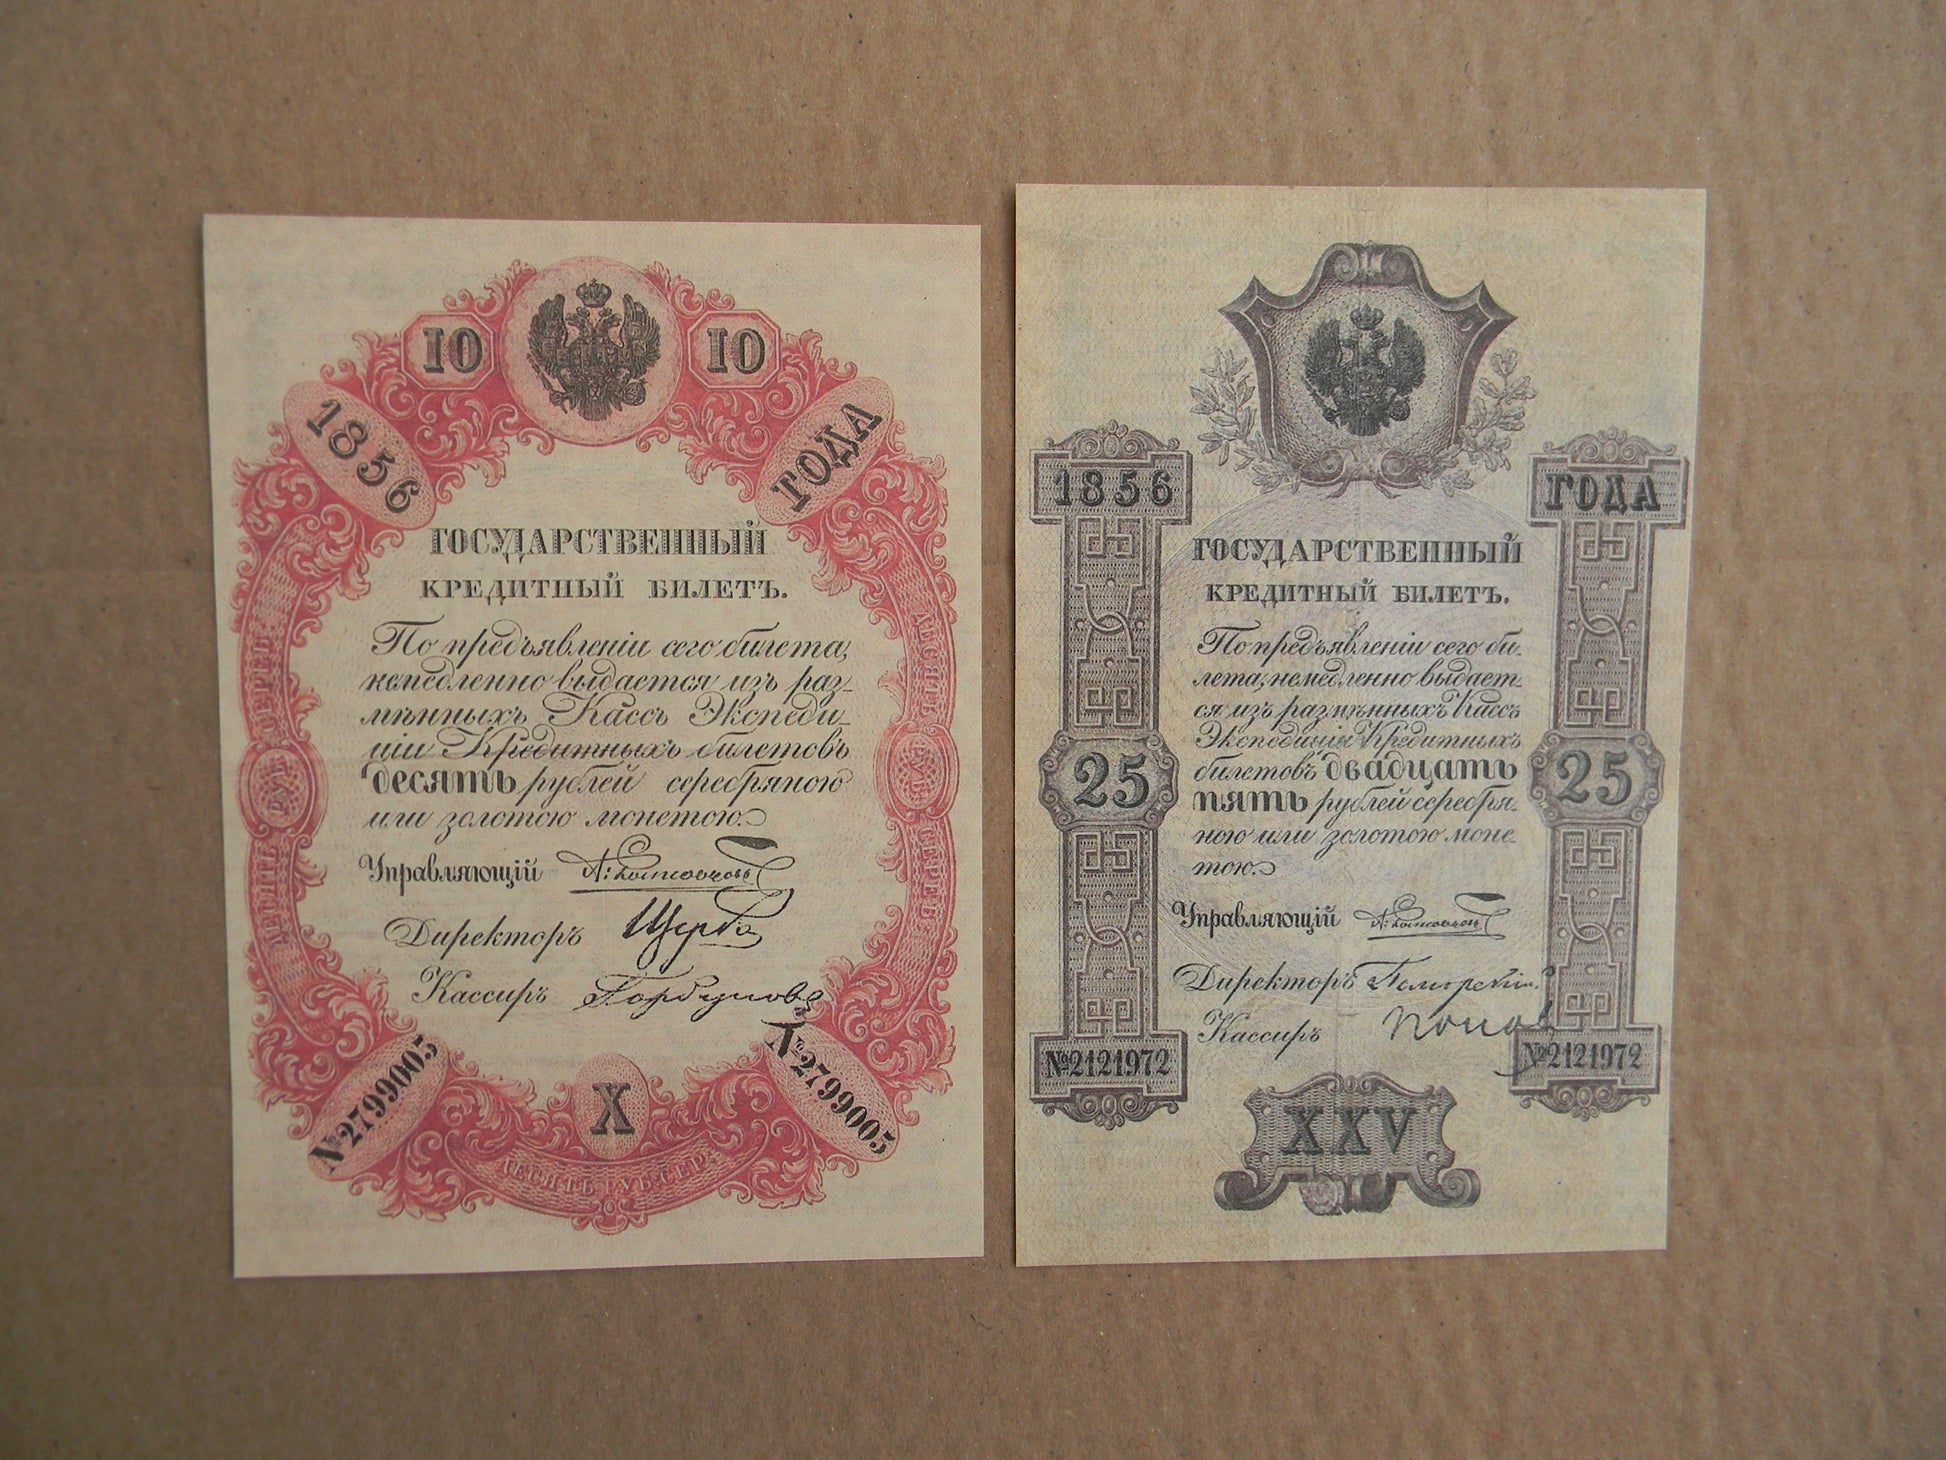 10 10
1856 ГОДА
ГОСУДАРСТВЕННЫЙ
КРЕДИТНЫЙ БИЛЕТЪ.
По предъявленіи сего билета,
немедленно выдается изъ раз-
мѣнныхъ Кассъ Экспеди-
ціи Кредитныхъ билетовъ
десять рублей серебряною
или золотою монетою.
Управляющій
Директоръ Щерба
Кассиръ Горбуновъ
ДЕСЯТЬ РУБ. СЕРЕБ.
ДЕСЯТЬ РУБ. СЕРЕБ.
№2799005 №2799005
X
ДЕСЯТЬ РУБ. СЕР.
1856 ГОДА
ГОСУДАРСТВЕННЫЙ
КРЕДИТНЫЙ БИЛЕТЪ.
По предъявленіи сего би-
лета, немедленно выдает-
ся изъ размѣнныхъ Кассъ
Экспедиціи Кредитныхъ
билетовъ двадцать
пять рублей серебря-
ною или золотою моне-
тою.
25 25
Управляющій
Директоръ
Кассиръ Попов
№2121972 №2121972
XXV